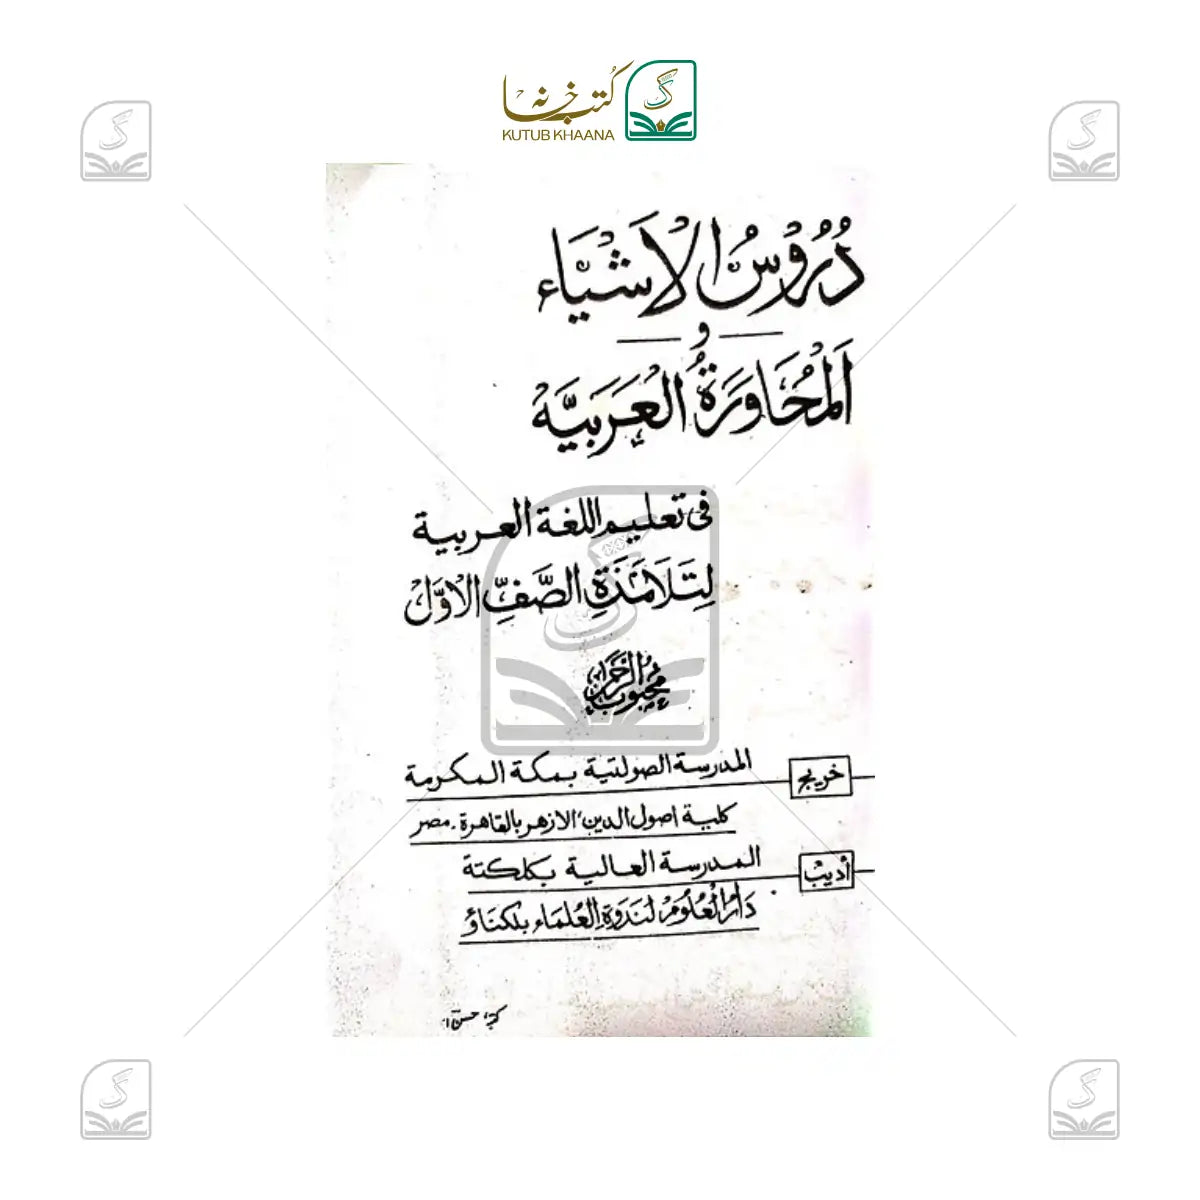 كتب خانہ
KUTUB KHAANA
دُرُوْسُ الْاَشْيَاء
و
اَلْمُحَاوَرَةُ الْعَرَبِيَّه
فى تعليم اللغة العربية
لِتَلَامَذَةِ الصَّفِّ الْاَوَّل
محبوب الرحمن
خريج المدرسة الصولتية بمكة المكرمة
كلية اصول الدين، الازهر بالقاهرة. مصر
أديب المدرسة العالية بكلكتة
دَارُ الْعُلُوْمِ لنَدْوَةِ الْعُلَمَاء بلكناؤ